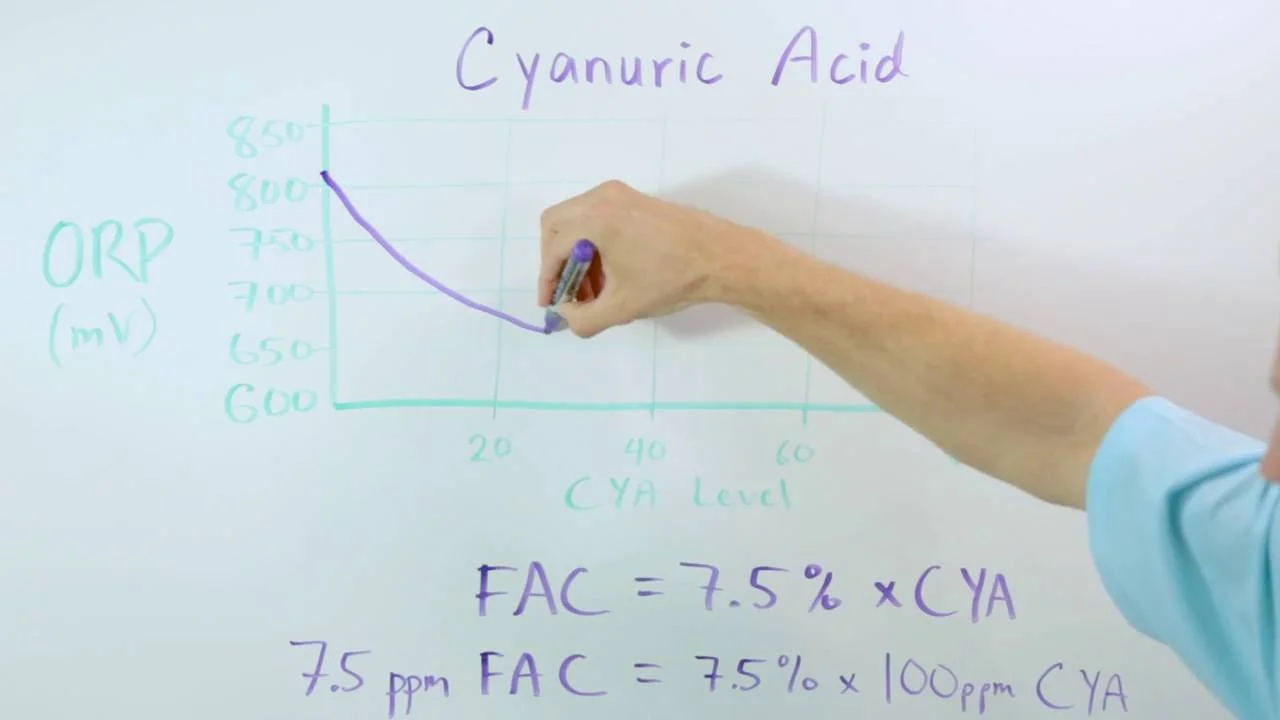 Cyanuric Acid
850
800
ORP
750
(mV)
700
650
600
20 40 60
CYA Level
FAC = 7.5% x CYA
7.5 ppm FAC = 7.5% x 100ppm CYA